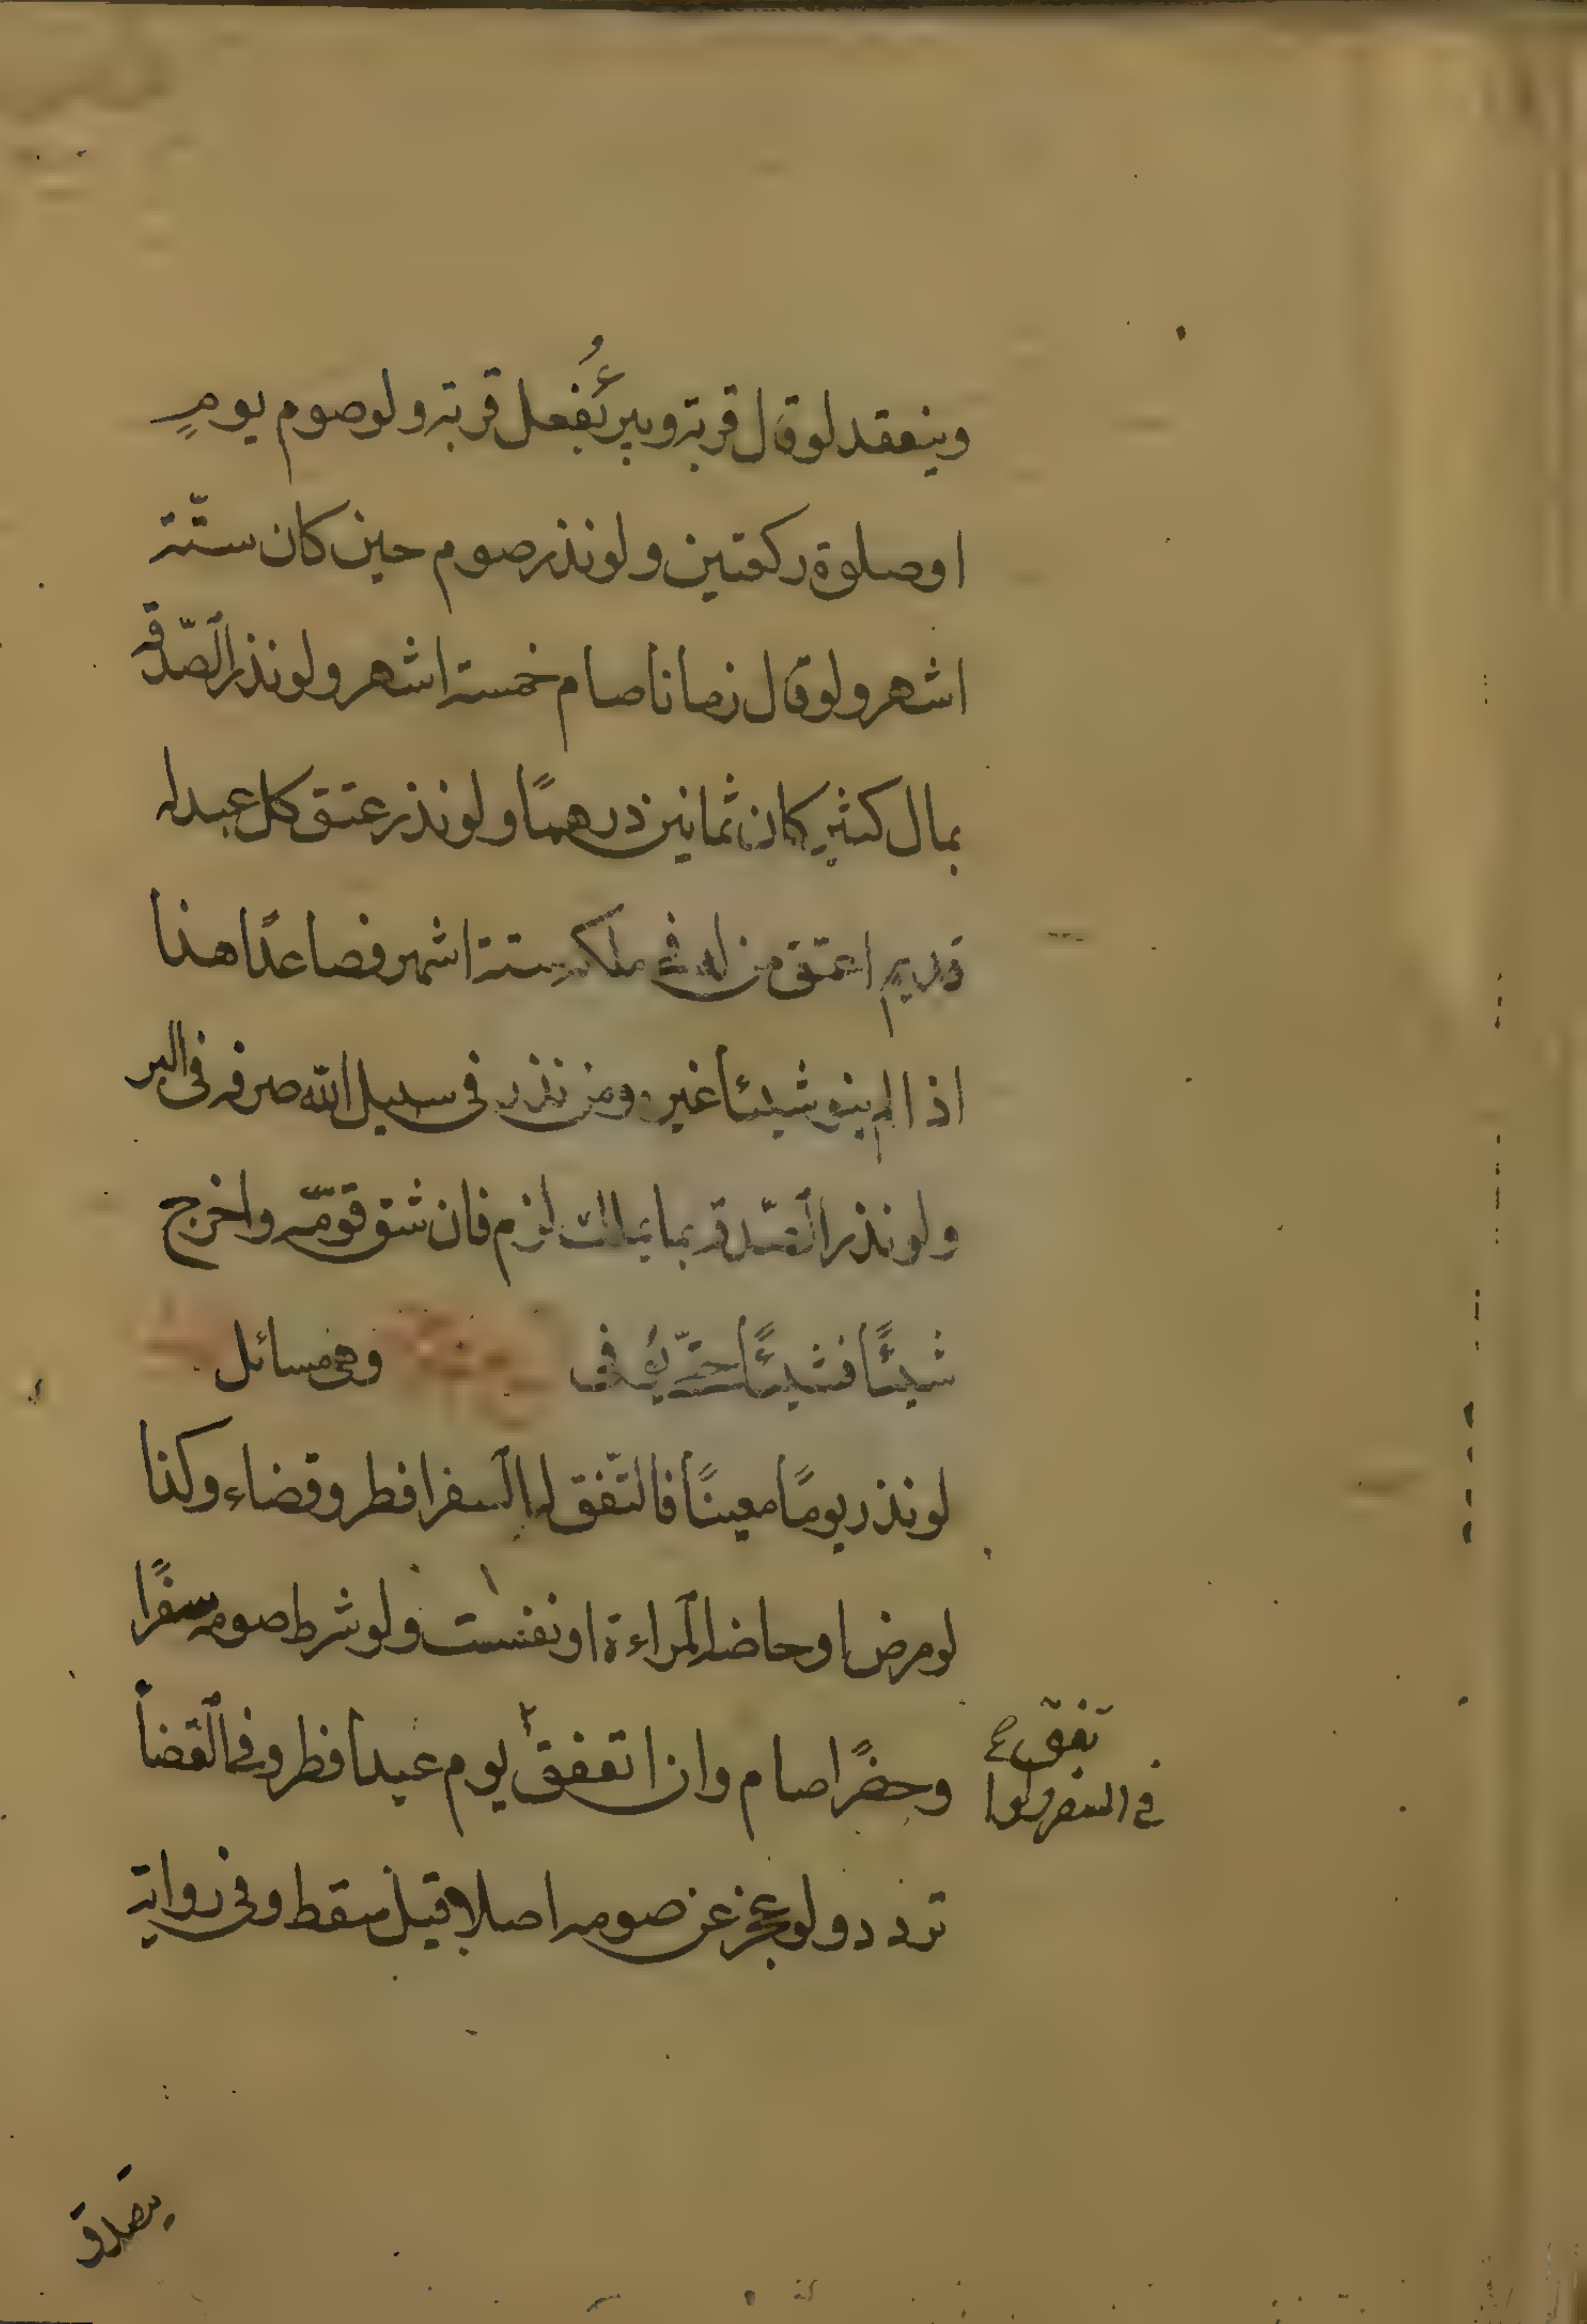 وينعقد لوقال قربة ويبرئفعل قربة ولوصوم يومٍ
اوصلوة ركعتين ولونذر صوم حين كان ستّة
اشهر ولوقال زمانا صام خمسة اشهر ولونذر الصّدقة
بمال كثير كان ثمانين درهمًا ولونذر عتق كل عبد له
قديم اعتق من له فى ملكه ستة اشهر فصاعدًا هذا
اذا لم ينو شيئا غيره ومن نذر فى سبيل الله صرفه فى البر
ولونذر الصّدقة بما يملك لزم فان شق قوّمه واخرج
شيئًا فشيئًا حتّى يوفى وهى مسائل
لونذر يومًا معينًا فاتّفق له السفر افطر وقضاء وكذا
لومرض او حاضت المراءة او نفست ولوشرط صومه سفرًا
وحضرًا صام وان اتفق يوم عيد افطر وفى القضا
تردد ولوعجز عن صومه اصلا قيل سقط وفى رواية
فى السفر ولوا
يتصدق